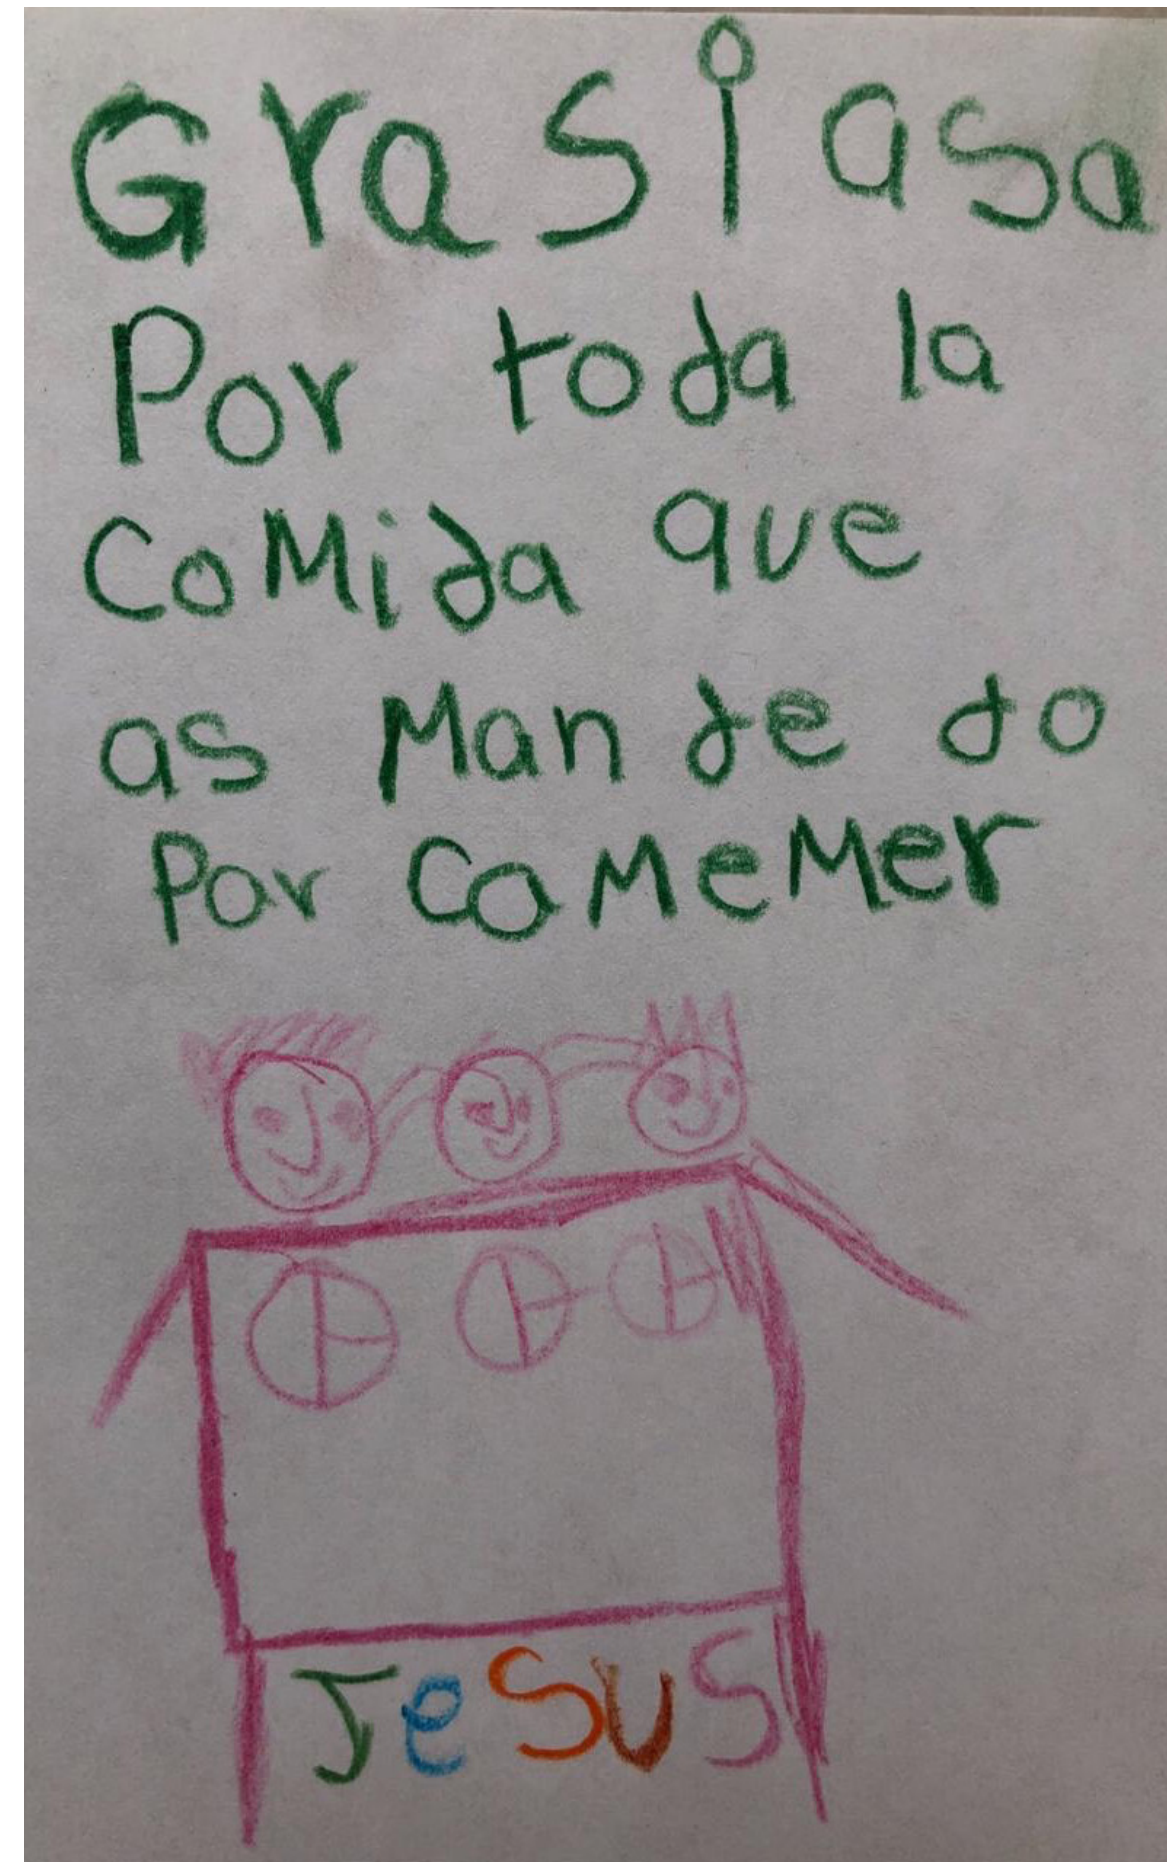 Grasiasa
Por toda la
CoMida que
as Man de do
Por CoMeMer
JeSuS